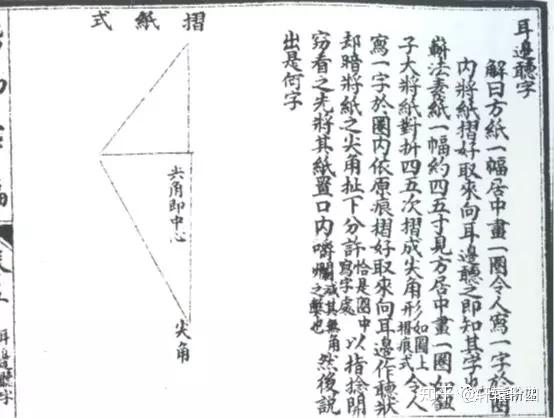 耳邊聽字
解曰方紙一幅居中畫一圈令人寫一字於圈
內將紙摺好取來向耳邊聽之即知其字也
法裁紙一幅約四五寸見方居中畫一圈
子大將紙對折四五次摺成尖角形如圖上摺痕式令人
寫一字於圈內依原痕摺好取來向耳邊作聽狀
却暗將紙之尖角扯下分許恰是圈中寫字處以指捻開
窃看之先將其紙置口內嚼爛滅其無角之弊也然後說
出是何字
摺紙式
角即中心
尖角
耳邊聽字
知乎